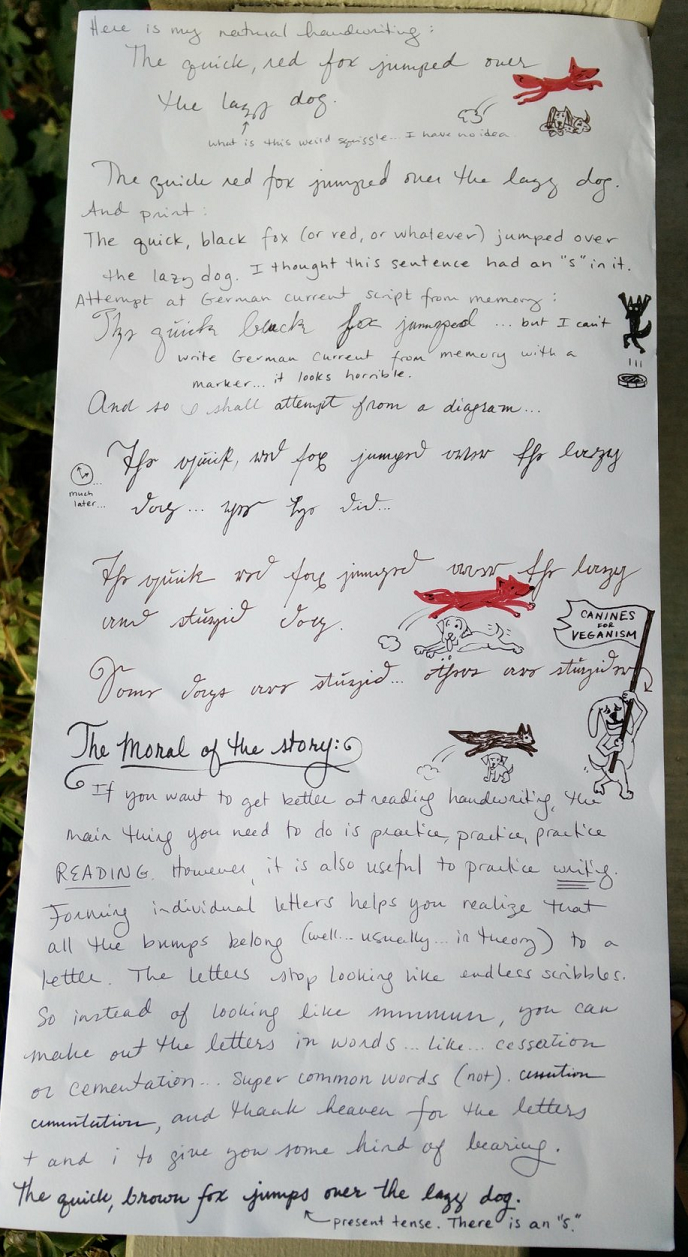 Here is my natural handwriting:
The quick, red fox jumped over
the lazy dog.
what is this weird squiggle... I have no idea
The quick red fox jumped over the lazy dog.
And print:
The quick, black fox (or red, or whatever) jumped over
the lazy dog. I thought this sentence had an "s" in it.
Attempt at German current script from memory:
The quick black fox jumped ... but I can't
write German current from memory with a
marker... it looks horrible.
And so I shall attempt from a diagram...
The quick, red fox jumped over the lazy
much
later...
dog... yes he did...
The quick red fox jumped over the lazy
and stupid dog.
CANINES
FOR
VEGANISM
Some dogs are stupid... others are stupider
The Moral of the story:
If you want to get better at reading handwriting, the
main thing you need to do is practice, practice, practice
READING. However, it is also useful to practice writing.
Forming individual letters helps you realize that
all the bumps belong (well... usually... in theory) to a
letter. The letters stop looking like endless scribbles.
So instead of looking like mmmuun, you can
make out the letters in words... like... cessation
or cementation... Super common words (not). cessation
cementation, and thank heaven for the letters
t and i to give you some kind of bearing.
The quick, brown fox jumps over the lazy dog.
present tense. There is an "s."